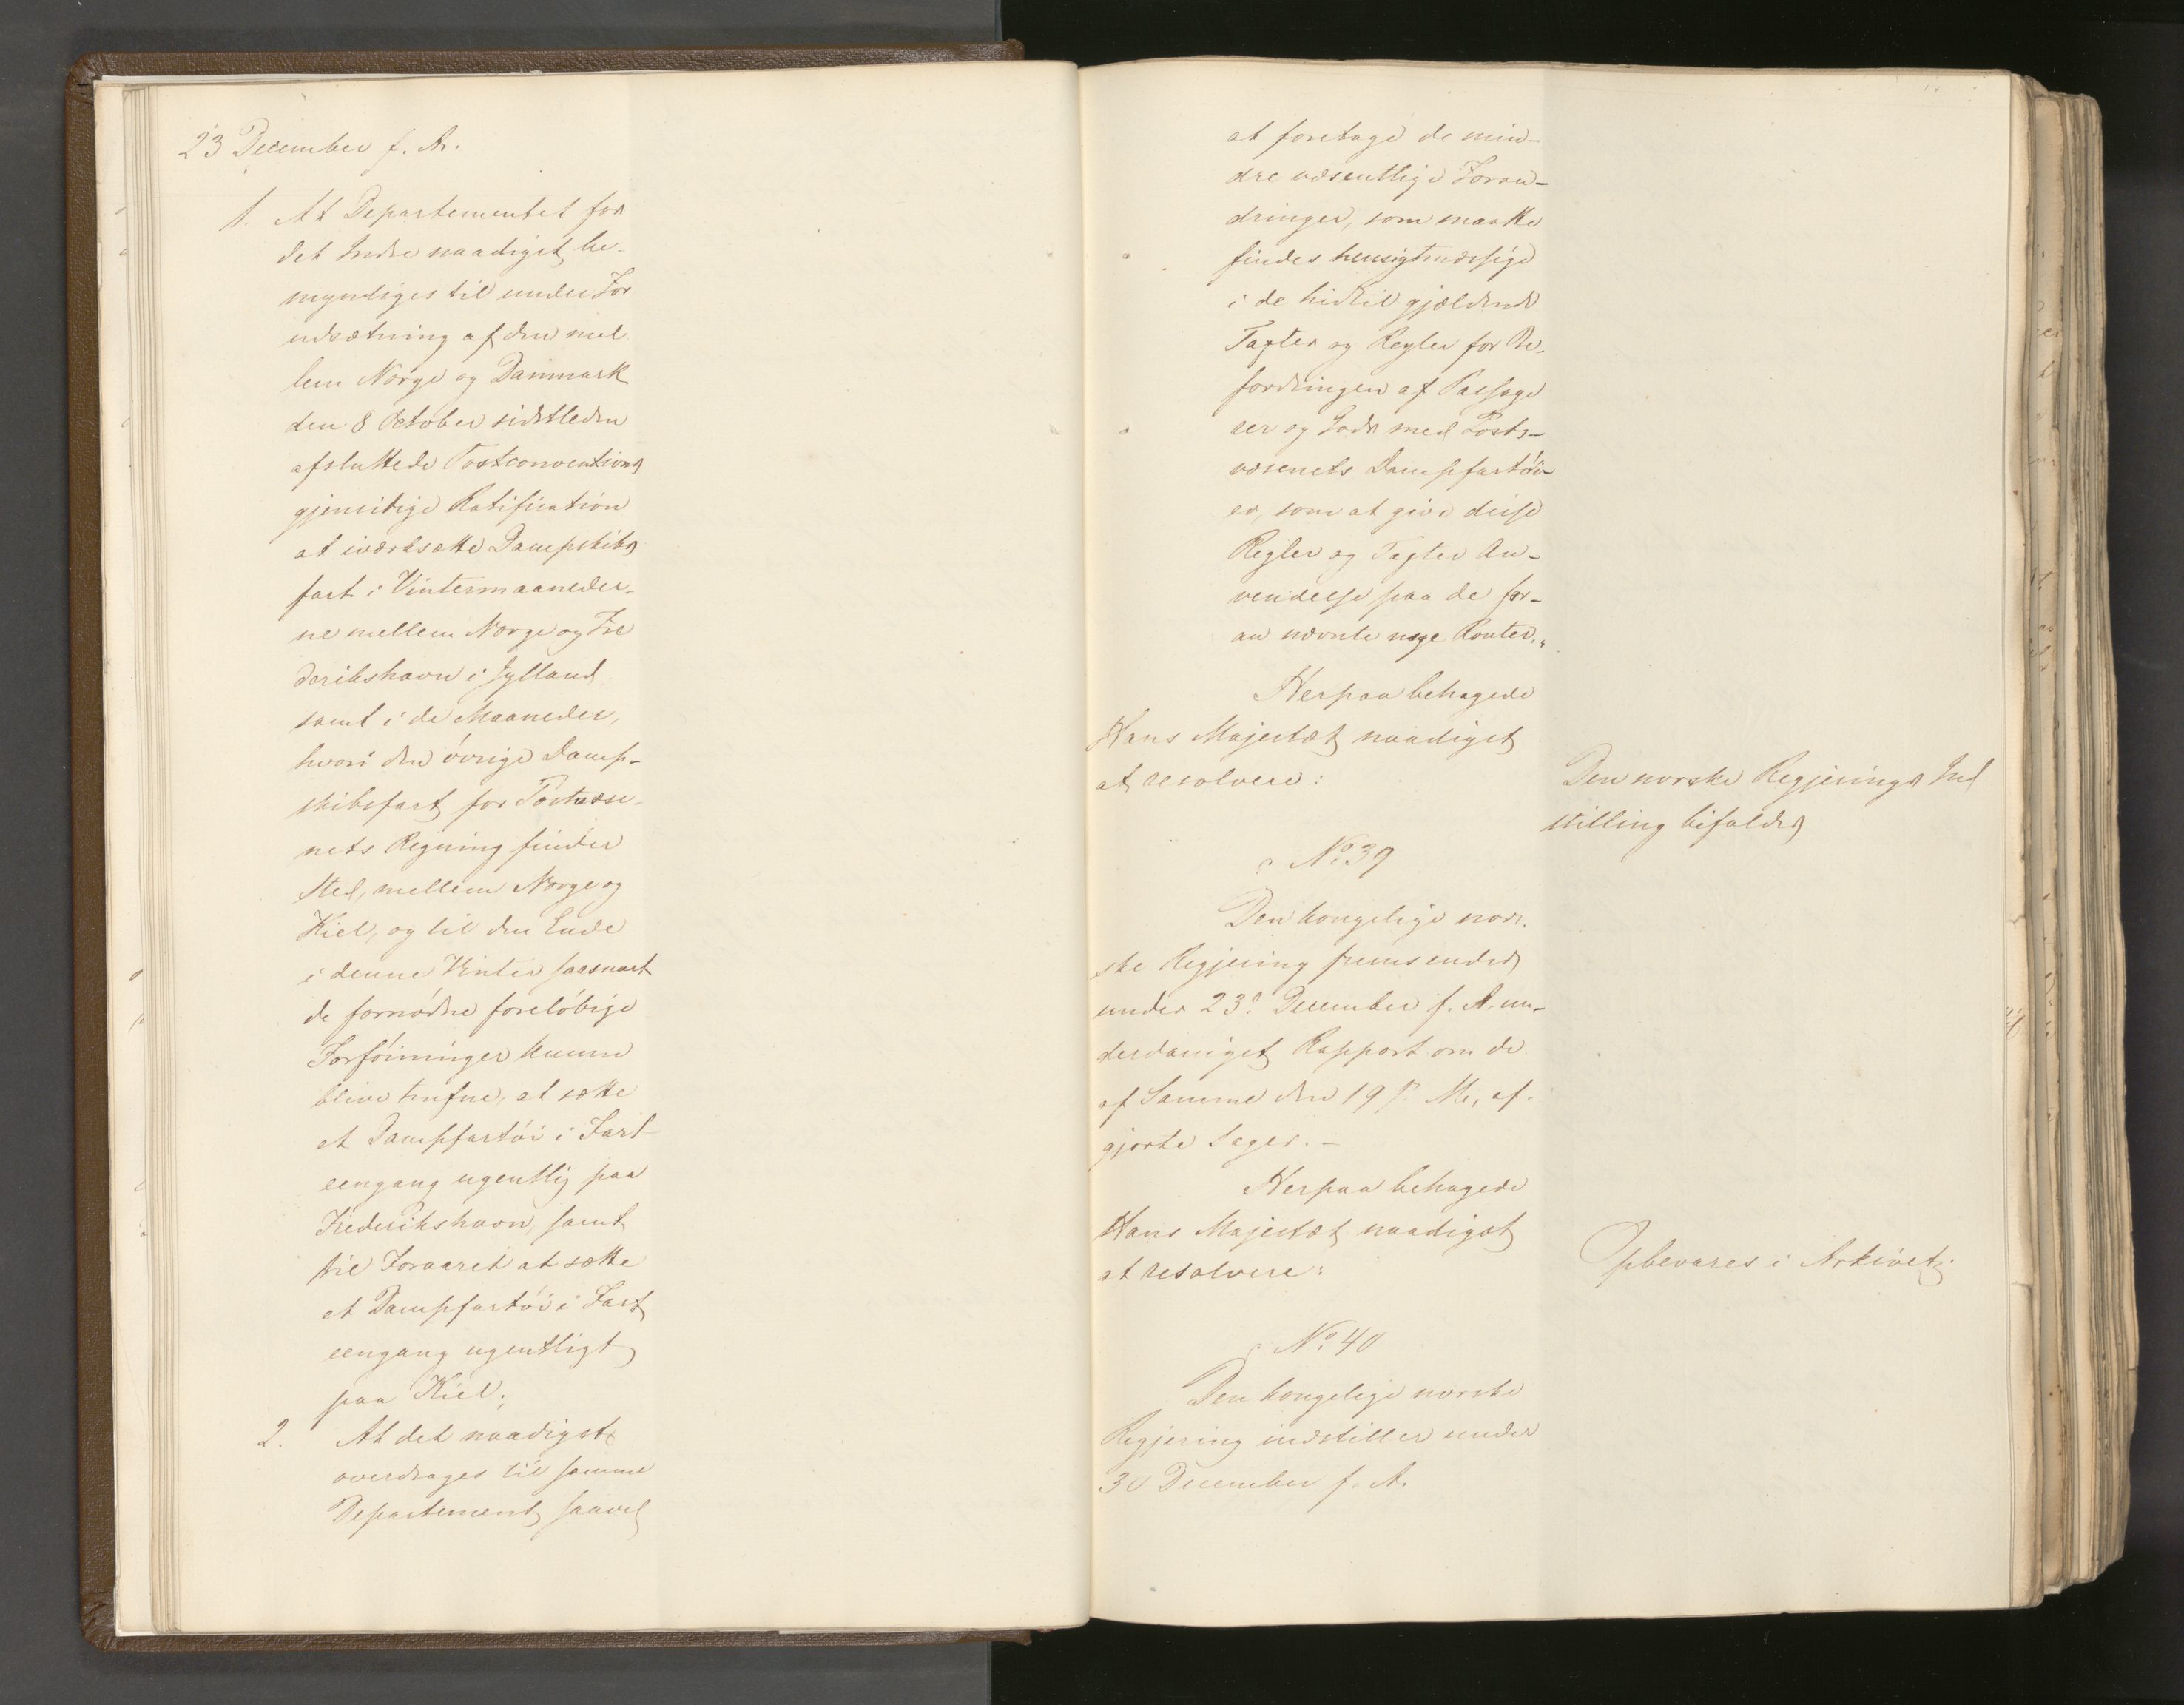 23 December f. A.
1. At Departementet for
det Indre naadigst be-
myndiges til under For
udsætning af den mel
lem Norge og Danmark
den 8 October sidstleden
afsluttede Postconventions
gjensidige Ratification
at iværksætte Dampskibs
fart i Vintermaaneder-
ne mellem Norge og Fre
derikshavn i Jylland
samt i de Maaneder,
hvori den övrige Damp-
skibsfart for Postvæse-
nets Regning finder
Sted, mellem Norge og
Kiel, og til den Ende
i denne Vinter saasnart
de fornödne forelöbige
Forföininger kunne
blive trufne, at sætte
et Dampfartöi i Fart
eengang ugentlig paa
Frederikshavn, samt
til Foraaret at sætte
et Dampfartöi i Fart
eengang ugentligt
paa Kiel;
2. At det naadigst
overdrages til samme
Departement saavel
at foretage de min-
dre væsentlige Foran-
dringer, som maatte
findes hensigtmæssige
i de hidtil gjældende
Taxter og Regler for Be-
fordringen af Passage
rer og Gods med Post-
væsenets Dampfartöi-
er, som at give disse
Regler og Taxter An-
vendelse paa de for-
an nævnte nye Router."
Herpaa behagede
Hans Majestæt naadigst
at resolvere:
Den norske Regjerings Ind
stilling bifaldes
No. 39
Den kongelige nor-
ske Regjering fremsendes
under 23d December f. A. un-
derdanigst Rapport om de
af Samme den 19 s. M. af-
gjorte Sager. -
Herpaa behagede
Hans Majestæt naadigst
at resolvere:
Opbevares i Arkivet.
No. 40
Den kongelige norske
Regjering indstiller under
30 December f. A.